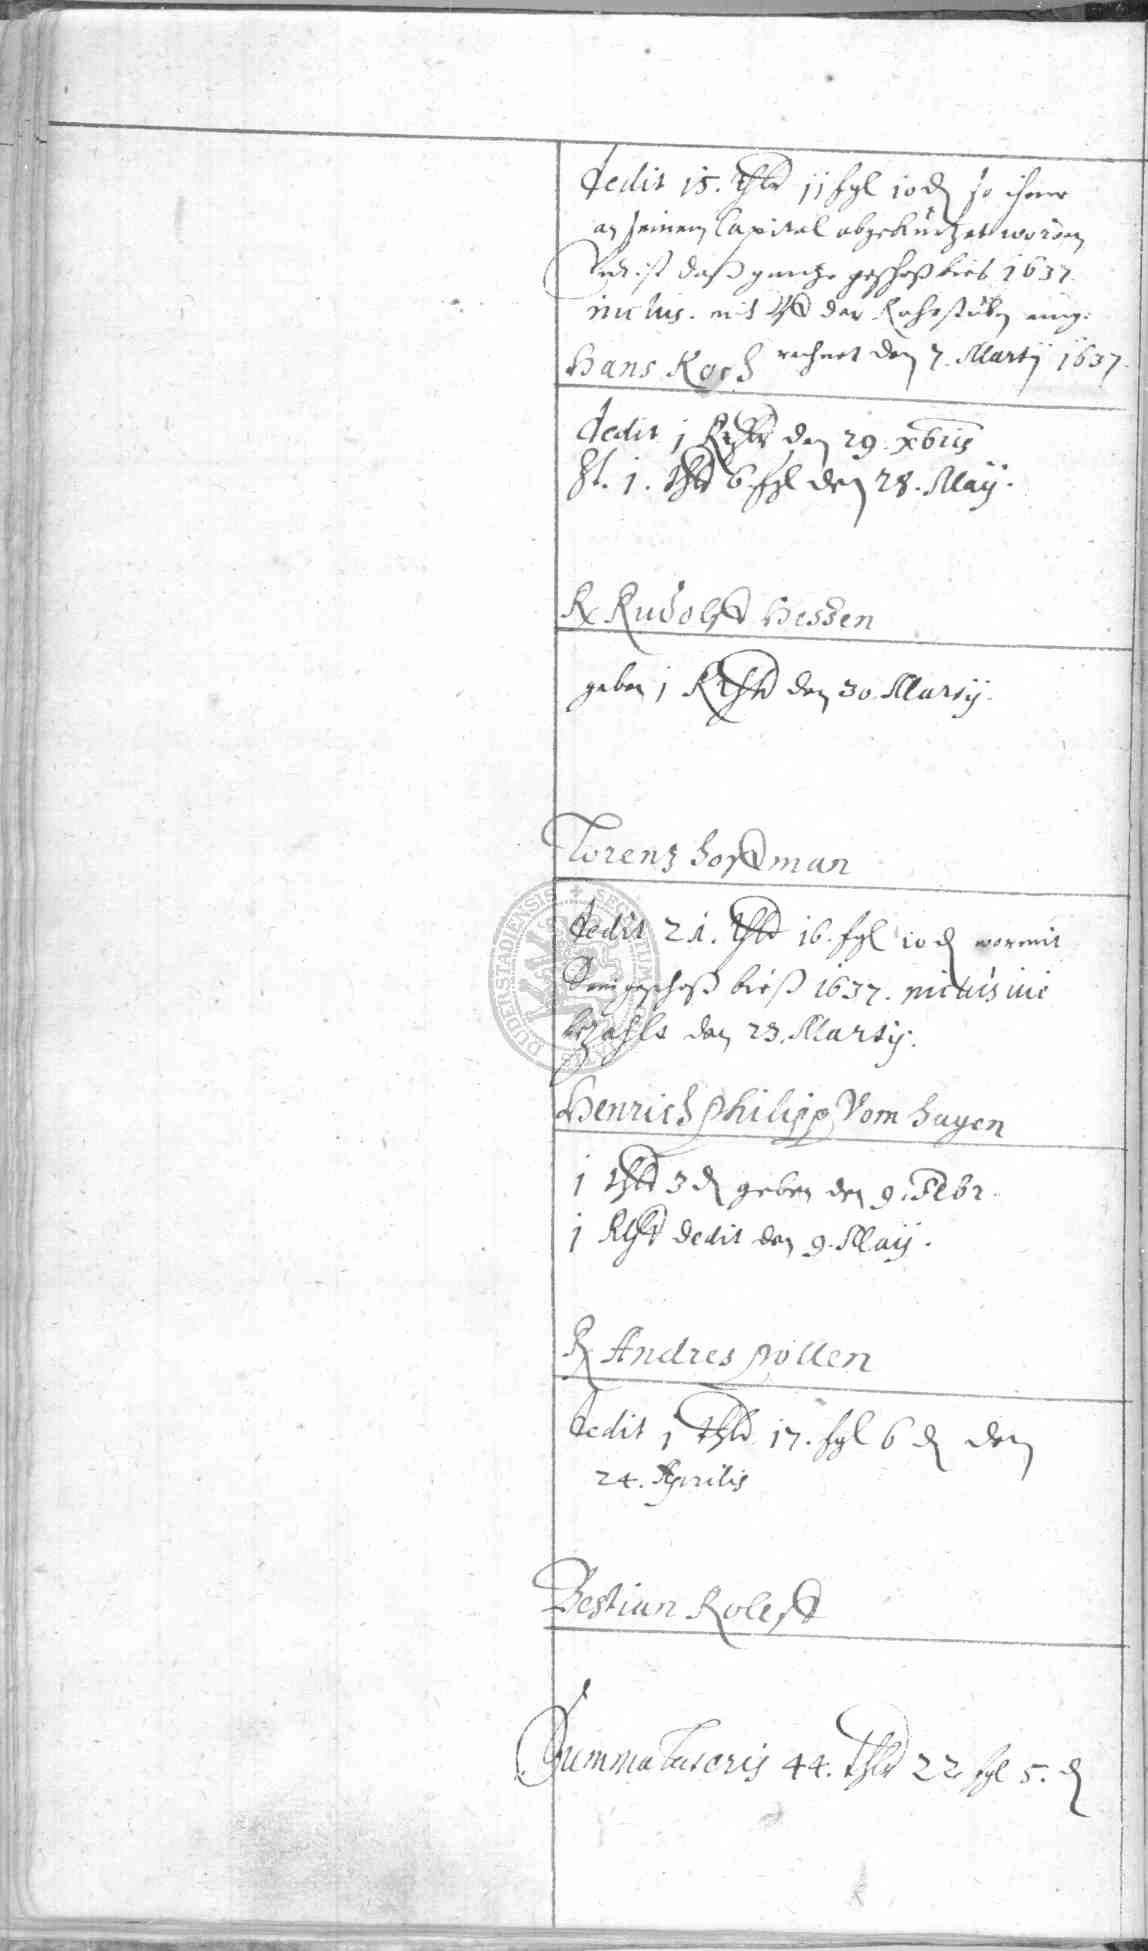 dedit 15. thlr 11 sgl 10 ₰ so ihme
an seinem Capital abgekürtzet worden
ist daß gantze geschoß bies 1637.
inclus. mit der
Hans Koch rechnet den 7. Martij 1637.
dedit 1 Rthlr den 29. xbris
It. 1. thlr 6 sgl den 28. Maij.
Rudolff Hessen
geben 1 Rthlr den 30. Martij.
Lorenz Hoffman
dedit 21. thlr 16. sgl 10 ₰ wormit
geschoß bieß 1637. inclusive
bezahlt den 23. Martij.
Henrich Philipp Vom Hagen
1 thlr 3 ₰ geben den 9. Febr.
1 Rthlr dedit den 9. Maij.
Andres Pollen
dedit 1 thlr 17. sgl 6 ₰ den
24. Aprilis
Bestian Roleff
Summa Lateris 44. thlr 22 sgl 5. ₰
DUDERSTADIENSIS + SECRETUM